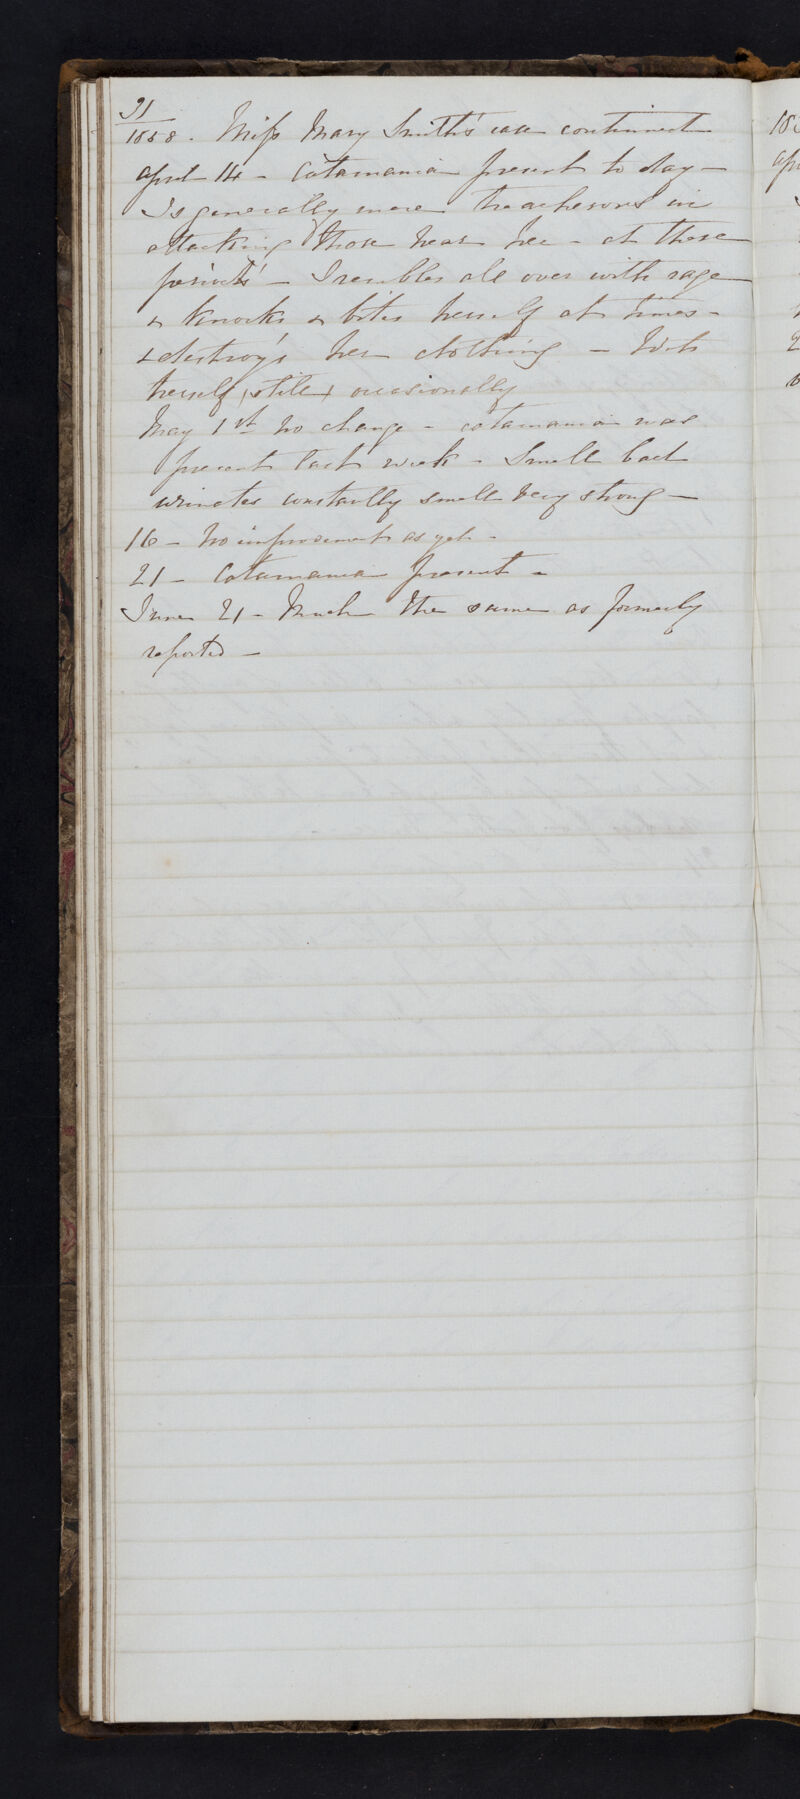 31
1858. Miss Mary Smith's case continued
April 14 - Catamania present to day -
Is generally more treacherous in
attacking those near her - at these
periods - Trembles all over with rage
& knocks & bites herself at times -
& destroys her clothing - Wets
herself still occasionally
May 1st No change - catamania was
present last week - Smells bad
urinates constantly smells very strong -
16 - No improvement as yet -
21 - Catamania present -
June 21 - Much the same as formerly
reported -